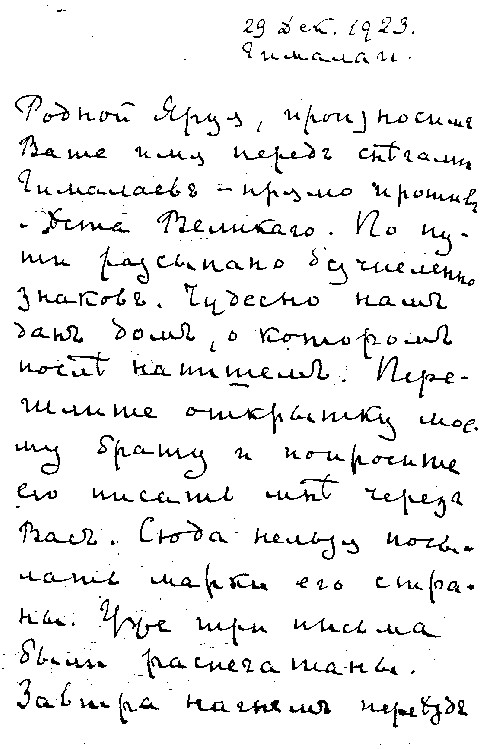 29 Дек. 1923.
Гималаи.
Родной Яруя, произносимъ
Ваше имя передъ снѣгами
Гималаевъ – прямо противъ
Великаго. По пу-
ти разсыпано безчисленно
знаковъ. Чудесно намъ
данъ домъ, о которомъ
послѣ напишемъ. Пере-
шлите открытку мое-
му брату и попросите
его писать мнѣ черезъ
Васъ. Сюда нельзя посы-
лать марки его стра-
ны. Уже три письма
были распечатаны.
Завтра начнемъ переѣздъ